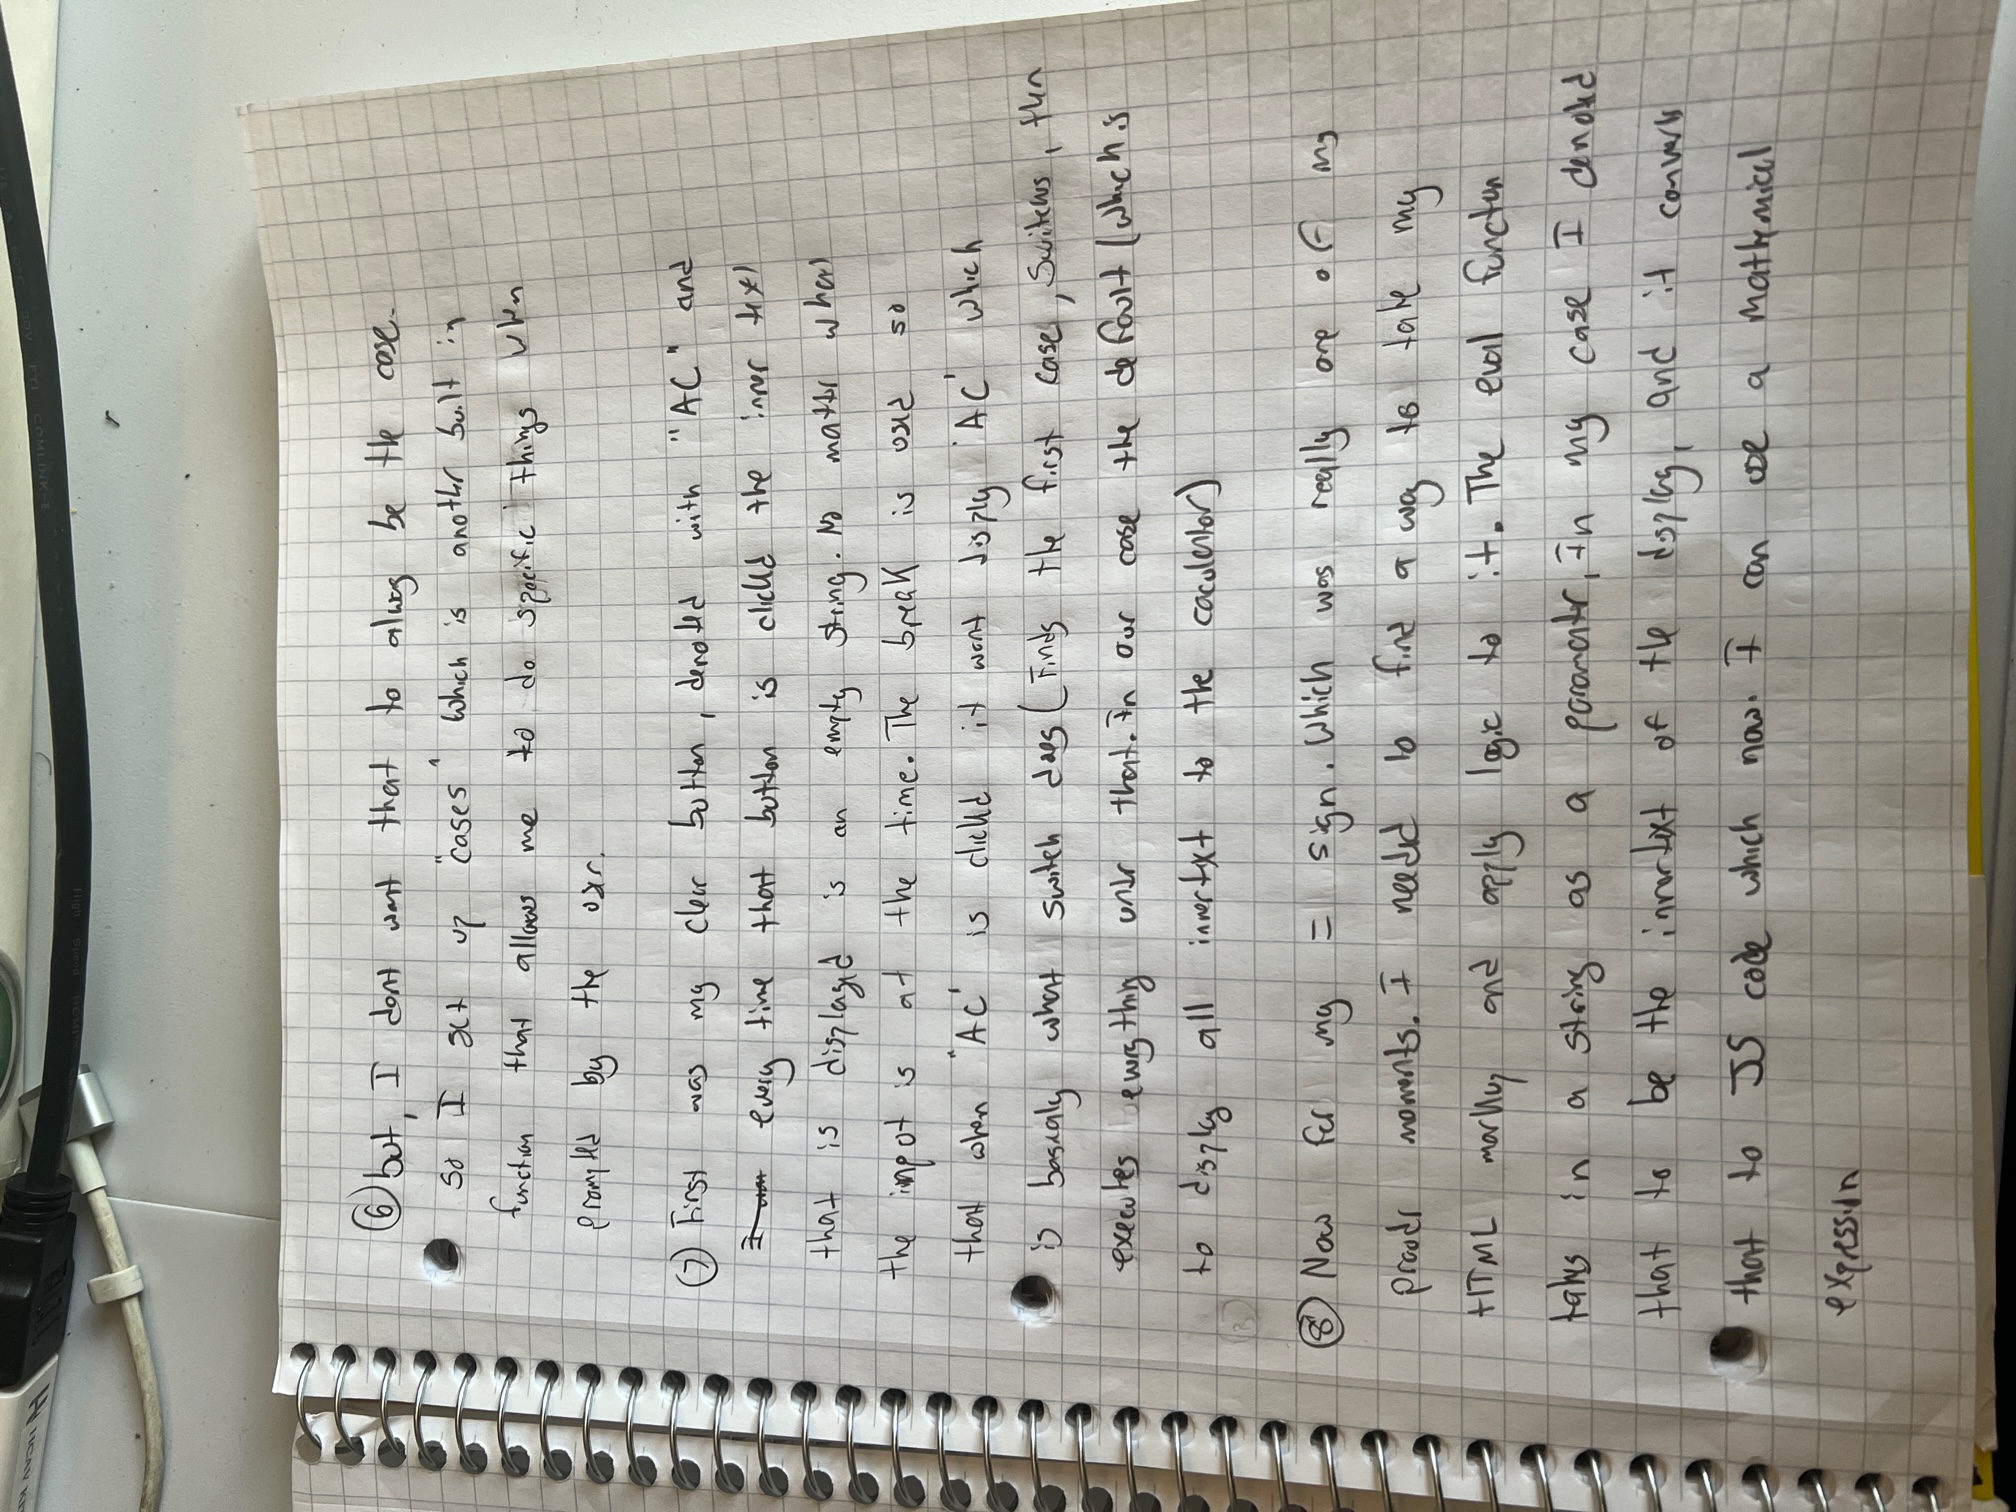 ⑥ but, I dont want that to alway be the case.
so I set up "cases" which is another built in
function that allows me to do specific things when
prompted by the user.
⑦ First was my clear button, denoted with "AC" and
every time that button is clicked the inner text
that is displayed is an empty string. No matter what
the input is at the time. The break is used so
that when "AC" is clicked it wont disply "AC" which
is basicaly what switch does (Finds the first case, switches, then
executes everything under that. In our case the default (which is
to display all innertext to the caculator)
⑧ Now for my = sign. Which was really one of my
prouder moments. I needed to find a way to take my
HTML markup and apply logic to it. The eval function
takes in a string as a paramater, In my case I denoted
that to be the innertext of the display, and it converts
that to JS code which now. I can use a mathemical
expression